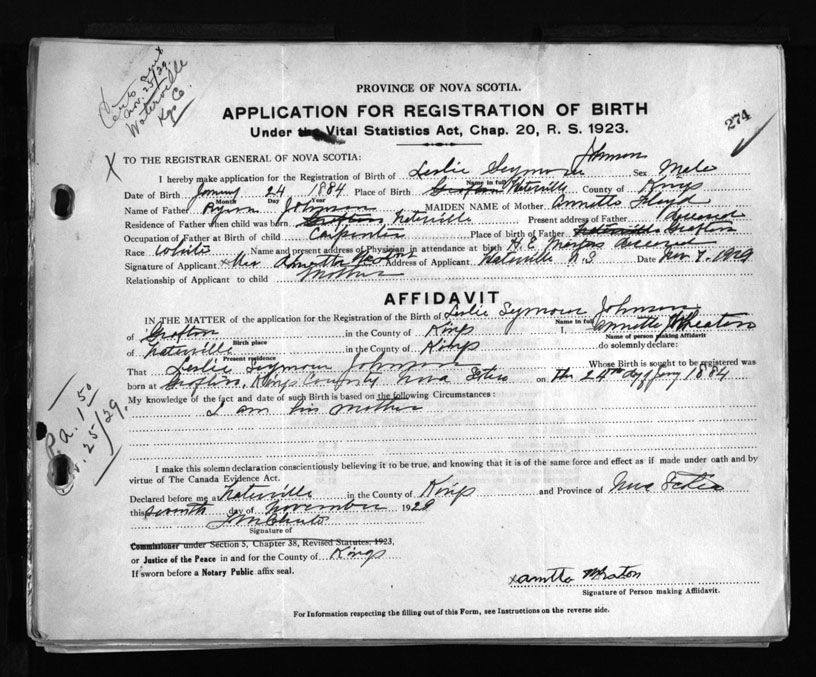 Nov. 25/29.
Waterville
Kgs Co.
PROVINCE OF NOVA SCOTIA.
APPLICATION FOR REGISTRATION OF BIRTH
274
Under the Vital Statistics Act, Chap. 20, R. S. 1923.
X TO THE REGISTRAR GENERAL OF NOVA SCOTIA:
I hereby make application for the Registration of Birth of Leslie Seymour Johnson Sex Male
Name in full
Date of Birth January 24 1884 Place of Birth Grafton Waterville County of Kings
Month Day Year
Name of Father Byron Johnson MAIDEN NAME of Mother Annetta Lloyd
Residence of Father when child was born Grafton Waterville Present address of Father deceased
Occupation of Father at Birth of child Carpenter Place of birth of Father Waterville Grafton
Race White Name and present address of Physician in attendance at birth H. E. deceased
Signature of Applicant x Mrs Annetta Address of Applicant Waterville N.S Date Nov 7, 1929
Relationship of Applicant to child Mother
AFFIDAVIT
IN THE MATTER of the application for the Registration of the Birth of Leslie Seymour Johnson
Name in full
of Grafton in the County of Kings I, Annetta Wheaton
Birth place Name of person making Affidavit
of Waterville in the County of Kings do solemnly declare:
Present residence
That Leslie Seymour Johnson Whose Birth is sought to be registered was
born at Grafton, Kings County Nova Scotia on the 24th day of Jany 1884
My knowledge of the fact and date of such Birth is based on the following Circumstances:
I am his mother
P.a. 1.50
Nov. 25/29.
I make this solemn declaration conscientiously believing it to be true, and knowing that it is of the same force and effect as if made under oath and by
virtue of The Canada Evidence Act.
Declared before me at Waterville in the County of Kings and Province of Nova Scotia
this seventh day of November 1929
Signature of
Commissioner under Section 5, Chapter 38, Revised Statutes, 1923,
or Justice of the Peace in and for the County of Kings
If sworn before a Notary Public affix seal.
x Annetta Wheaton
Signature of Person making Affidavit.
For Information respecting the filling out of this Form, see Instructions on the reverse side.